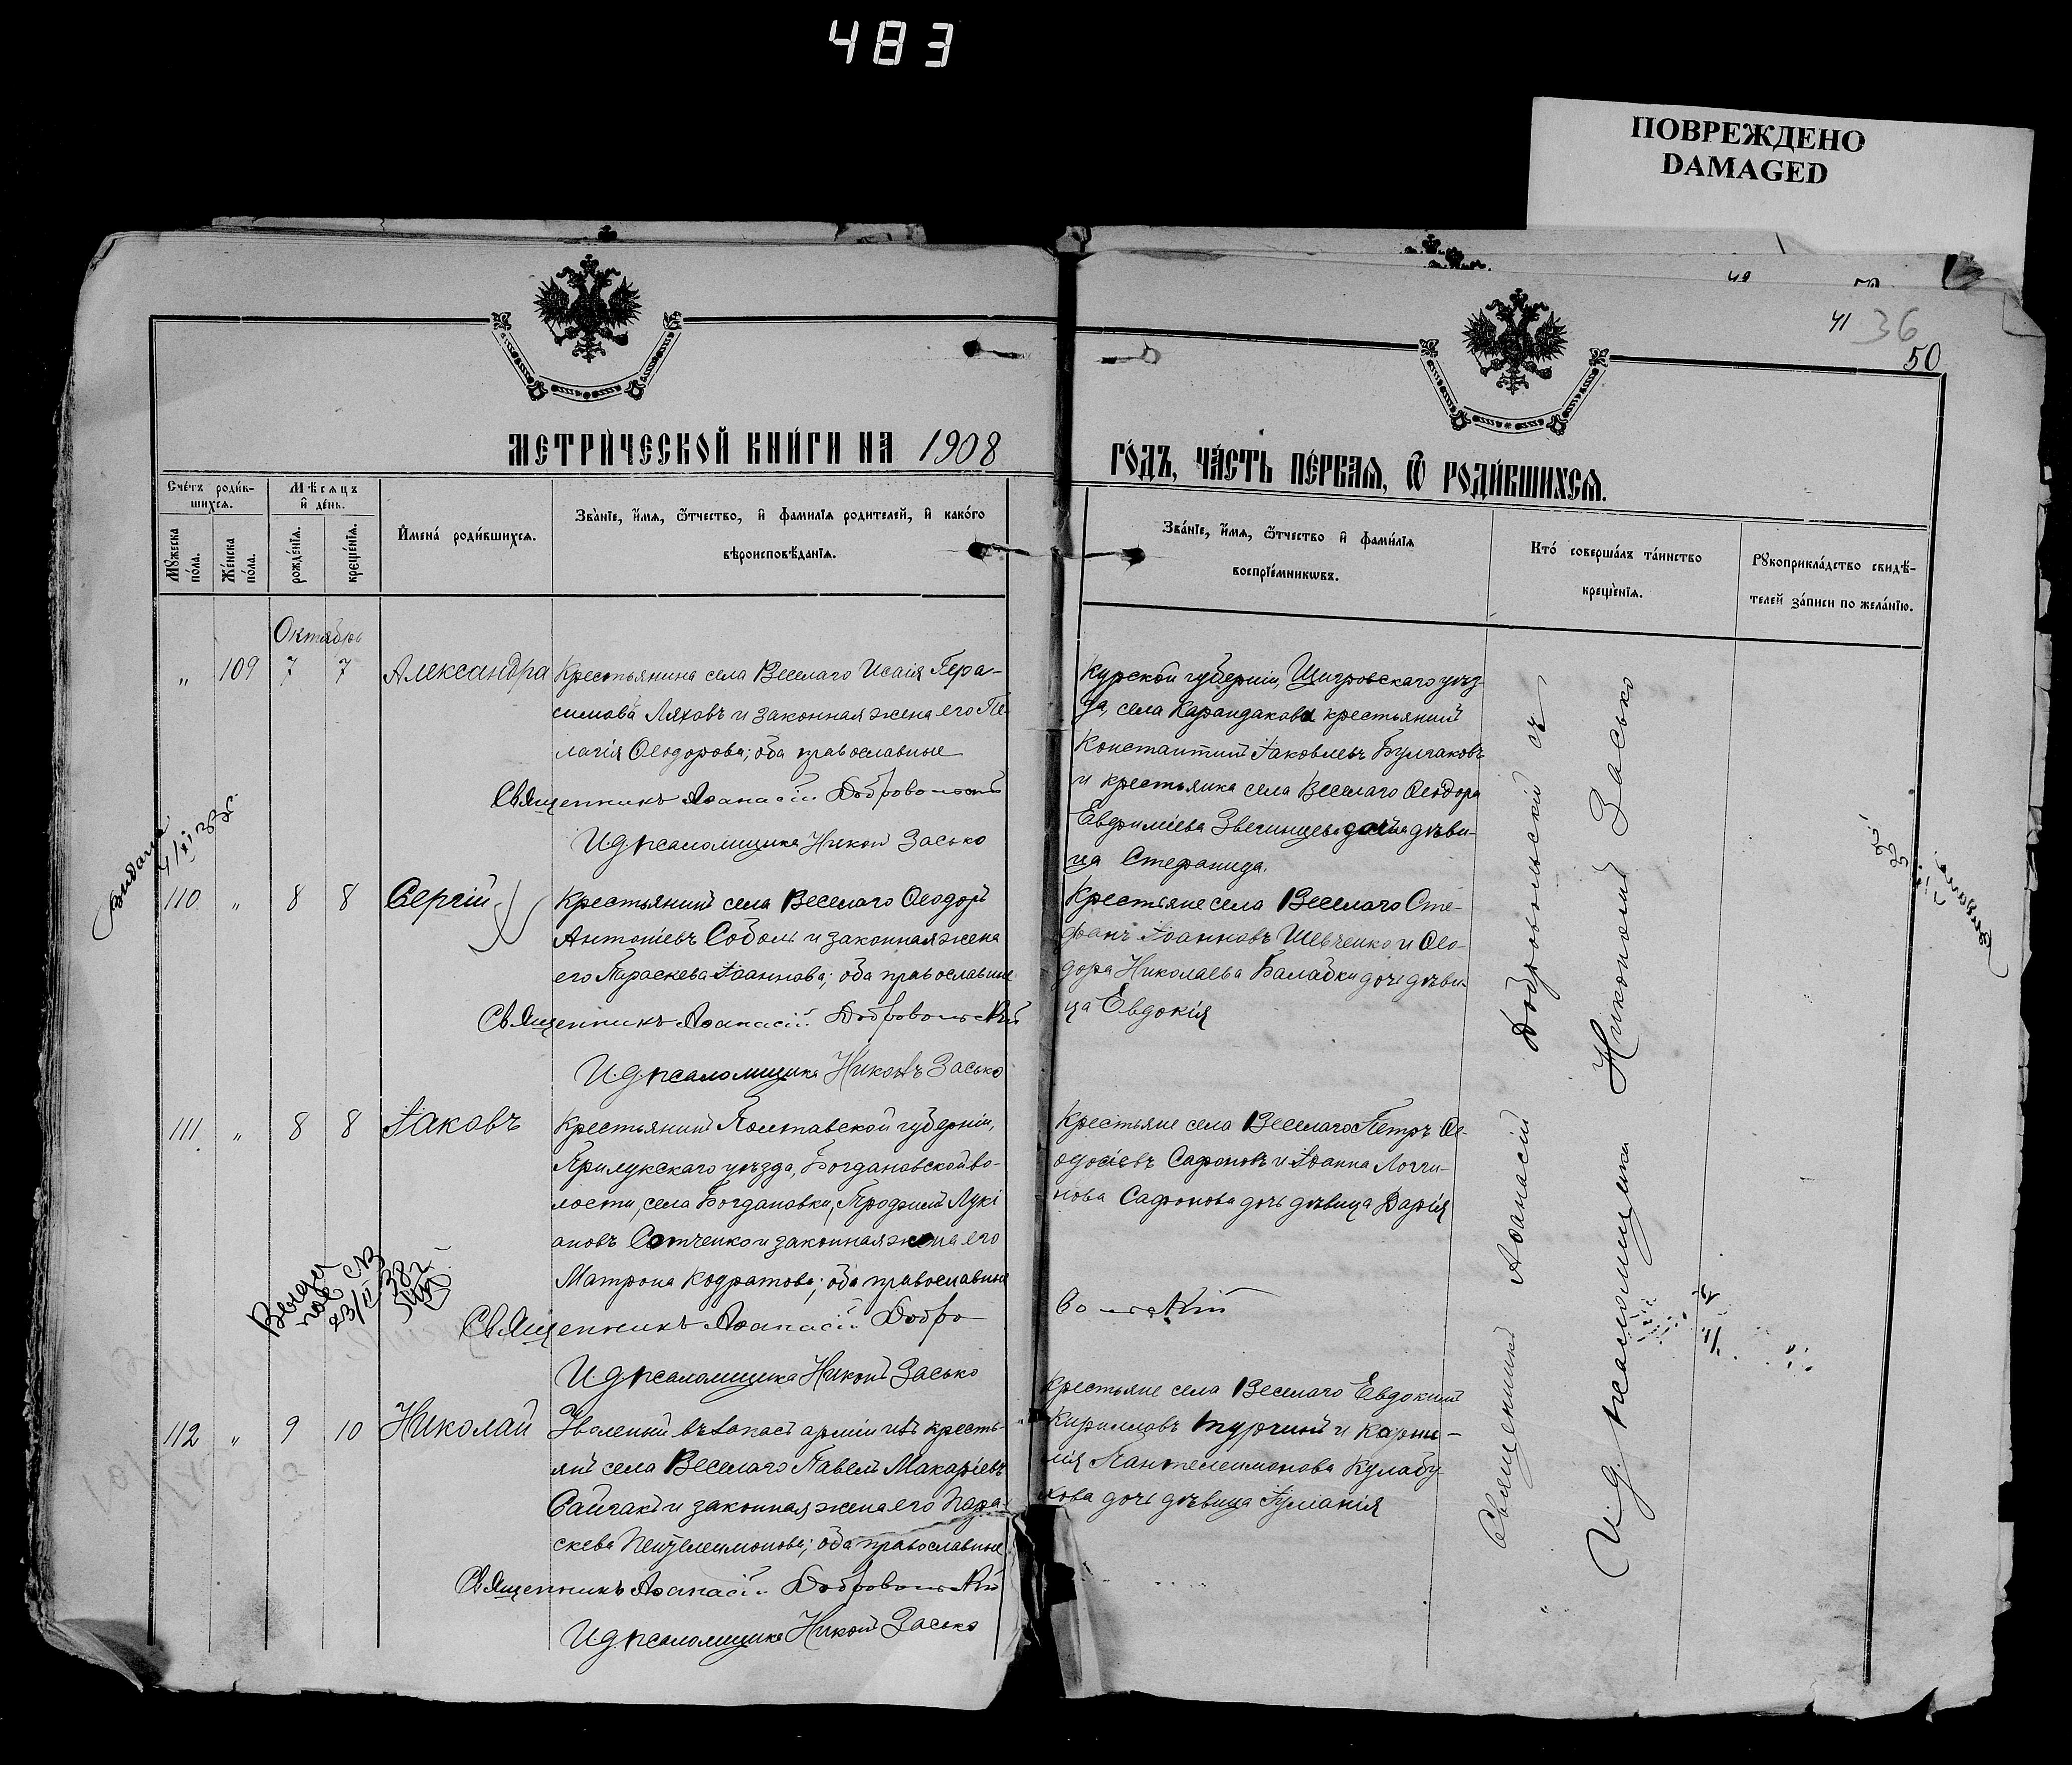 483
ПОВРЕЖДЕНО
DAMAGED
41 36
50
МЕТРИ́ЧЕСКОЙ КНИ́ГИ НА 1908
ГО́ДЪ, ЧА́СТЬ ПЕ́РВАѦ, Ѿ РОДИ́ВШИХСѦ.
Сче́тъ роди́в-
шихсѧ.
Мѣсѧцъ
и де́нь.
Мꙋжеска
по́ла.
Же́нска
по́ла.
рожде́нїѧ.
креще́нїѧ.
Имена́ роди́вшихсѧ.
Зва́нїе, и́мѧ, ѻ҆́тчество, и҆ фамилїѧ родителей, и҆ како́го
вѣроисповѣ́данїѧ.
Зва́нїе, и́мѧ, ѻ҆́тчество и҆ фами́лїѧ
воспрїе́мникѡвъ.
Кто́ соверша́лъ та́инство
креще́нїѧ.
Рꙋкоприкла́дство свидѣ́-
телей за́писи по жела́нїю.
Октябрь
„ 109 7 7 Александра
Крестьянина села Веселаго Исаія Гера-
симовъ Ляховъ и законная жена его Пе-
лагія Ѳеодорова; оба православные
Священникъ Аѳанасій Добровольскій
И.д. псаломщика Никон Засько
Курской губерніи, Щигровскаго уѣз-
да, села Карандакова крестьянинъ
Константинъ Іаковлевъ Булгаковъ
и крестьянка села Веселаго Ѳеодора
Евфиміева Звегинцева дочь дѣви-
ца Стефанида.
110 „ 8 8 Сергій
Крестьянинъ села Веселаго Ѳеодоръ
Антоніевъ Соболь и законная жена
его Параскева Іоаннова; оба православные
Священникъ Аѳанасій Добровольскій
И.д. псаломщика Никонъ Засько
Крестьяне села Веселаго Сте-
фанъ Іоанновъ Шевченко и Ѳео-
дора Николаева Балабки дочь дѣви-
ца Евдокія
111 „ 8 8 Іаковъ
Крестьянинъ Полтавской губерніи,
Прилукскаго уѣзда, Богдановской во-
лости, села Богдановки, Трофимъ Лукі
ановъ Сотченко и законная жена его
Матрона Кодратова; оба православные
Священникъ Аѳанасій Добро
вольскій
И.д. псаломщика Никонъ Засько
Крестьяне села Веселаго Петръ Ѳе-
одосіевъ Сафоновъ и Іоанна Логги-
нова Сафонова дочь дѣвица Дарія
112 „ 9 10 Николай
Уволеный въ запасъ арміи изъ кресть-
янъ села Веселаго Павелъ Макаріевъ
Сайгакъ и законная жена его Пара-
скева Пентелеимонова; оба православные
Священникъ Аѳанасій Добровольскій
И.д. псаломщика Никонъ Засько
Крестьяне села Веселаго Евдокимъ
Кирилловъ Турчинъ и Корни-
лія Пантелеимонова Кулабу
хова дочь дѣвица Іуліанія
Священникъ Аѳанасій Добровольский съ
И.д. псаломщика Никономъ Засько